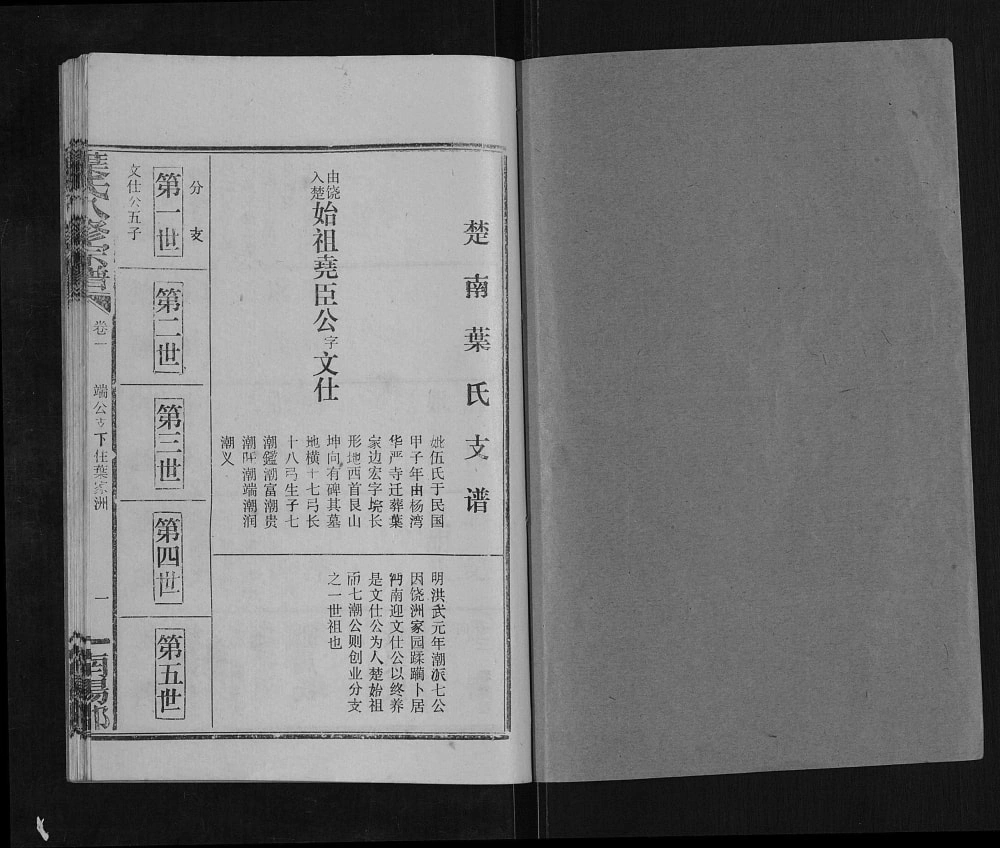 楚南葉氏支谱
由饶入楚始祖尭臣公字文仕
妣伍氏于民国
甲子年由杨湾
华严寺迁葬葉
家边宏字垸长
形地西首艮山
坤向有碑其墓
地横十七弓长
十八弓生子七
潮鑑潮富潮贵
潮旺潮端潮润
潮义
明洪武元年潮派七公
因饶洲家园蹂躏卜居
沔南迎文仕公以终养
是文仕公为入楚始祖
而七潮公则创业分支
之一世祖也
分支
第一世
第二世
第三世
第四世
第五世
文仕公五子
葉氏八修宗譜
卷一
端公支下住葉家洲
一
南陽郡